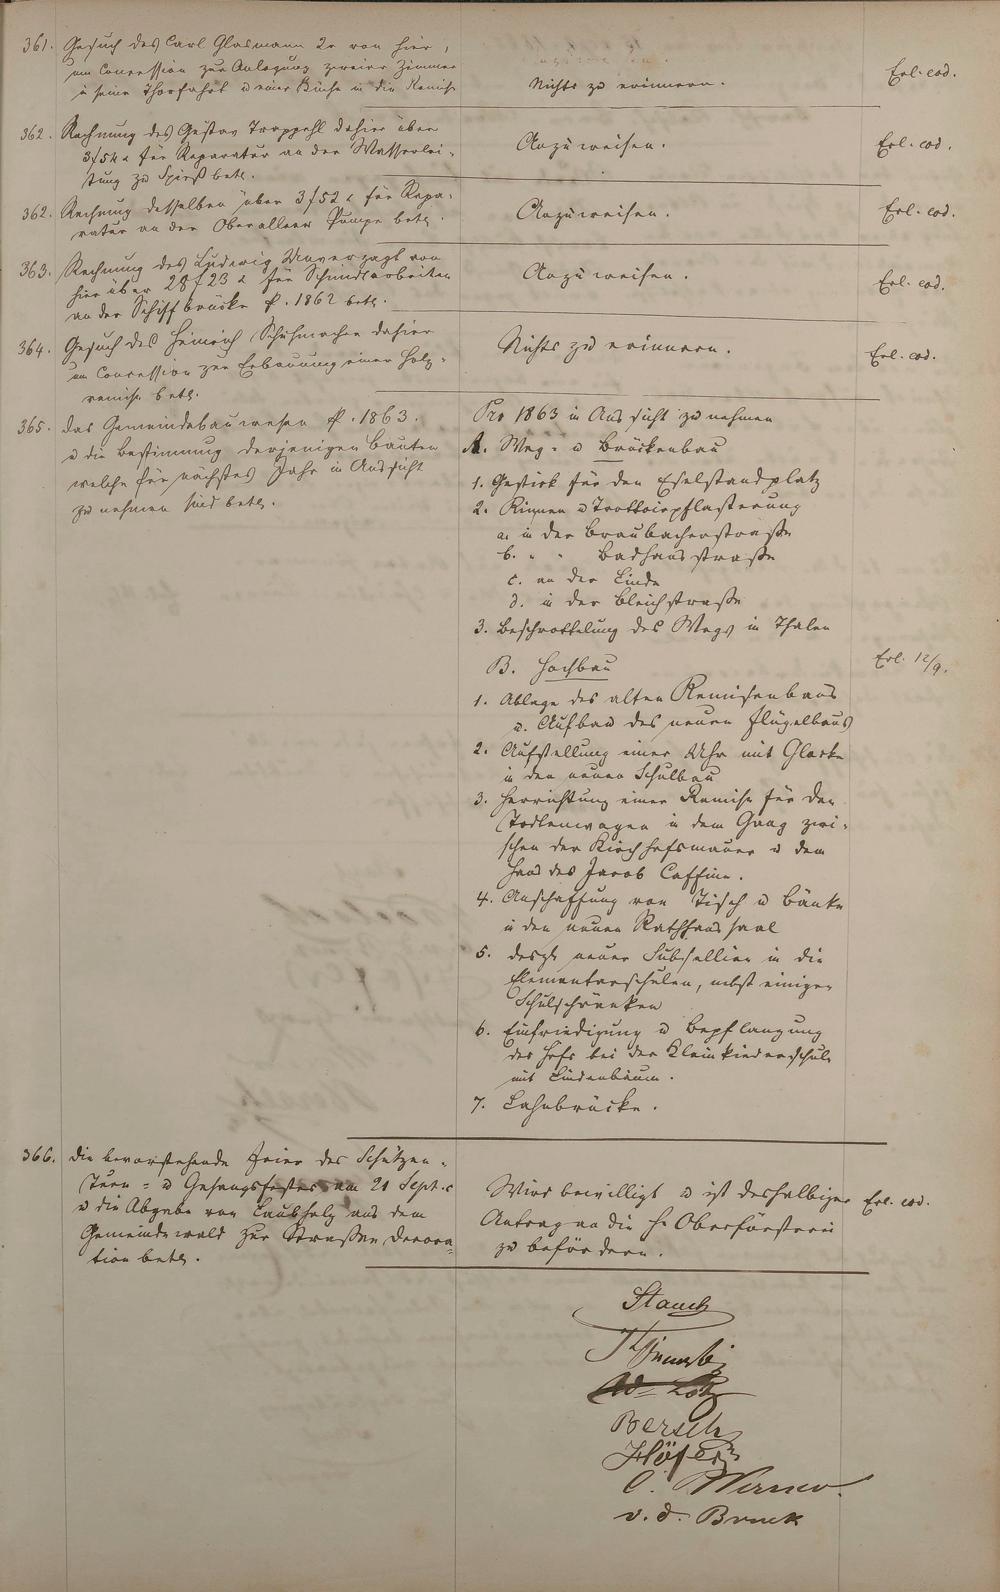 361. Gesuch des Carl Glasmann 2r von hier,
um Concession zur Anlegung zweier Zimmer
in seine Thorfahrt u einer Küche in die Remise
Nichts zu erinnern.
Erl. eod.
362. Rechnung des Gustav Trappehl dahier über
3 f 54 x für Reparatur an der Wasserlei-
tung zu Spieß betr.
Anzuweisen.
Erl. eod.
362. Rechnung desselben über 3 f 52 x für Repa-
ratur an der Oberalleer Pumpe betr.
Anzuweisen.
Erl. eod.
363. Rechnung des Ludwig Unverzagt von
hier über 28 f 23 x für Schmiedearbeiten
an der Schiffbrücke p. 1862 betr.
Anzuweisen.
Erl. eod.
364. Gesuch des Heinrich Schuhmacher dahier
um Concession zur Erbauung einer Holz-
remise betr.
Nichts zu erinnern.
Erl. eod.
365. Das Gemeindebauwesen p. 1863.
u die Bestimmung derjenigen Bauten
welche für nächstes Jahr in Aussicht
zu nehmen sind betr.
Pro 1863 in Aussicht zu nehmen
A. Weg- u Brückenbau
1. Gestick für den Eselstandplatz
2. Rinnen u Trottoirpflasterung
a. in der Braubacherstraße
b. " " Badhausstraße
c. an der Linde
d. in der Bleichstraße
3. Beschrottelung des Wegs in Thalen
B. Hochbau
1. Ablage des alten Remisenbaus
u. Aufbau des neuen Flügelbaus
2. Aufstellung einer Uhr mit Glocke
in den neuen Schulbau
3. Herrichtung einer Remise für den
Todtenwagen in dem Gang zwi-
schen der Kirchhofsmauer u dem
Haus des Jacob Caffine.
4. Anschaffung von Tisch u Bänke
in den neuen Rathhaussaal
5. desgl neuer Subsellien in die
Elementarschulen, nebst einigen
Schulschränken
6. Einfriedigung u Bepflanzung
des Hofs bei der Kleinkinderschule
mit Lindenbäum.
7. Lahnbrücke.
Erl. 12/9.
366. Die bevorstehende Feier des Schützen-
Turn- u Gesangsfestes am 21 Sept. c
u die Abgabe von Laubholz aus dem
Gemeindewald zur Straßen Decora-
tion betr.
Wird bewilligt u ist deshalbiger
Antrag an die H. Oberförsterei
zu befördern.
Erl. eod.
Stauch
Ad. Lotz
Bersch
Höfer
C. Werner.
v. d. Bruck